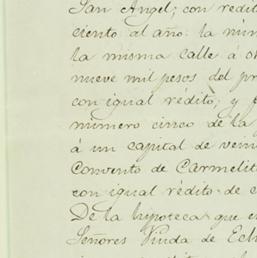 San Angel; con redit
ciento al año: la núm
la misma calle á o
nueve mil pesos del pr
con igual rédito; y
número cinco de la
á un capital de vein
Convento de Carmelit
con igual rédito de c
De la hipoteca que
Señores Viuda de Ech